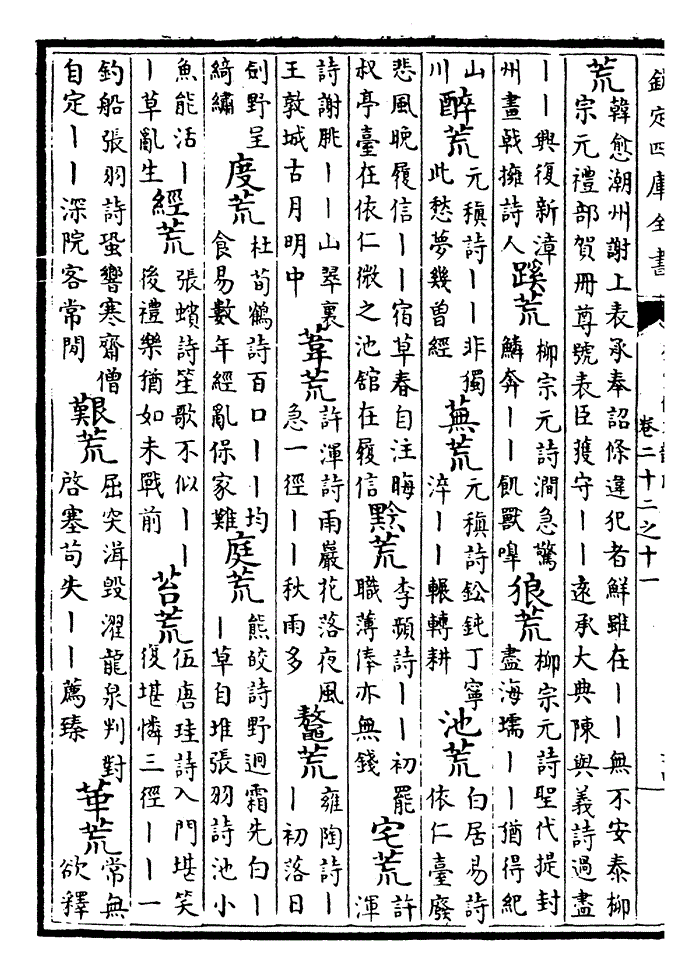 欽定四庫全書
卷二十二之十一
荒
韓愈潮州謝上表承奉詔條違犯者鮮雖在丨丨無不安泰柳
宗元禮部賀冊尊號表臣獲守丨丨遠承大典陳與義詩過盡
丨丨興復新漳
州畫戟擁詩人
蹊荒
柳宗元詩澗急驚
鱗奔丨丨飢獸嘷
狼荒
柳宗元詩聖代提封
盡海壖丨丨猶得紀
山
川
醉荒
元稹詩丨丨非獨
此愁夢幾曾經
蕪荒
元稹詩鈆鈍丁寧
淬丨丨輾轉耕
池荒
白居易詩
依仁臺廢
悲風晚履信丨丨宿草春自注晦
叔亭臺在依仁微之池館在履信
黔荒
李頻詩丨丨初罷
職薄俸亦無錢
宅荒
許
渾
詩謝朓丨丨山翠裏
王敦城古月明中
葦荒
許渾詩雨巖花落夜風
急一徑丨丨秋雨多
鼇荒
雍陶詩丨
丨初落日
劍野呈
綺繡
度荒
杜荀鶴詩百口丨丨均
食易數年經亂保家難
庭荒
熊皎詩野迥霜先白丨
丨草自堆張羽詩池小
魚能活丨
丨草亂生
經荒
張蠙詩笙歌不似丨丨
後禮樂猶如未戰前
苔荒
伍唐珪詩入門堪笑
復堪憐三徑丨丨一
釣船張羽詩蛩響寒齋僧
自定丨丨深院客常閒
艱荒
屈突湒毀濯龍泉判對
啓塞苟失丨丨薦臻
華荒
常無
欲釋